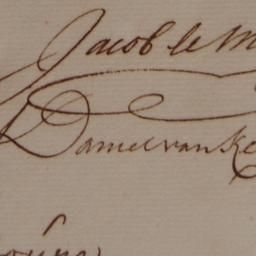 Jacob le M
Daniel van Ke